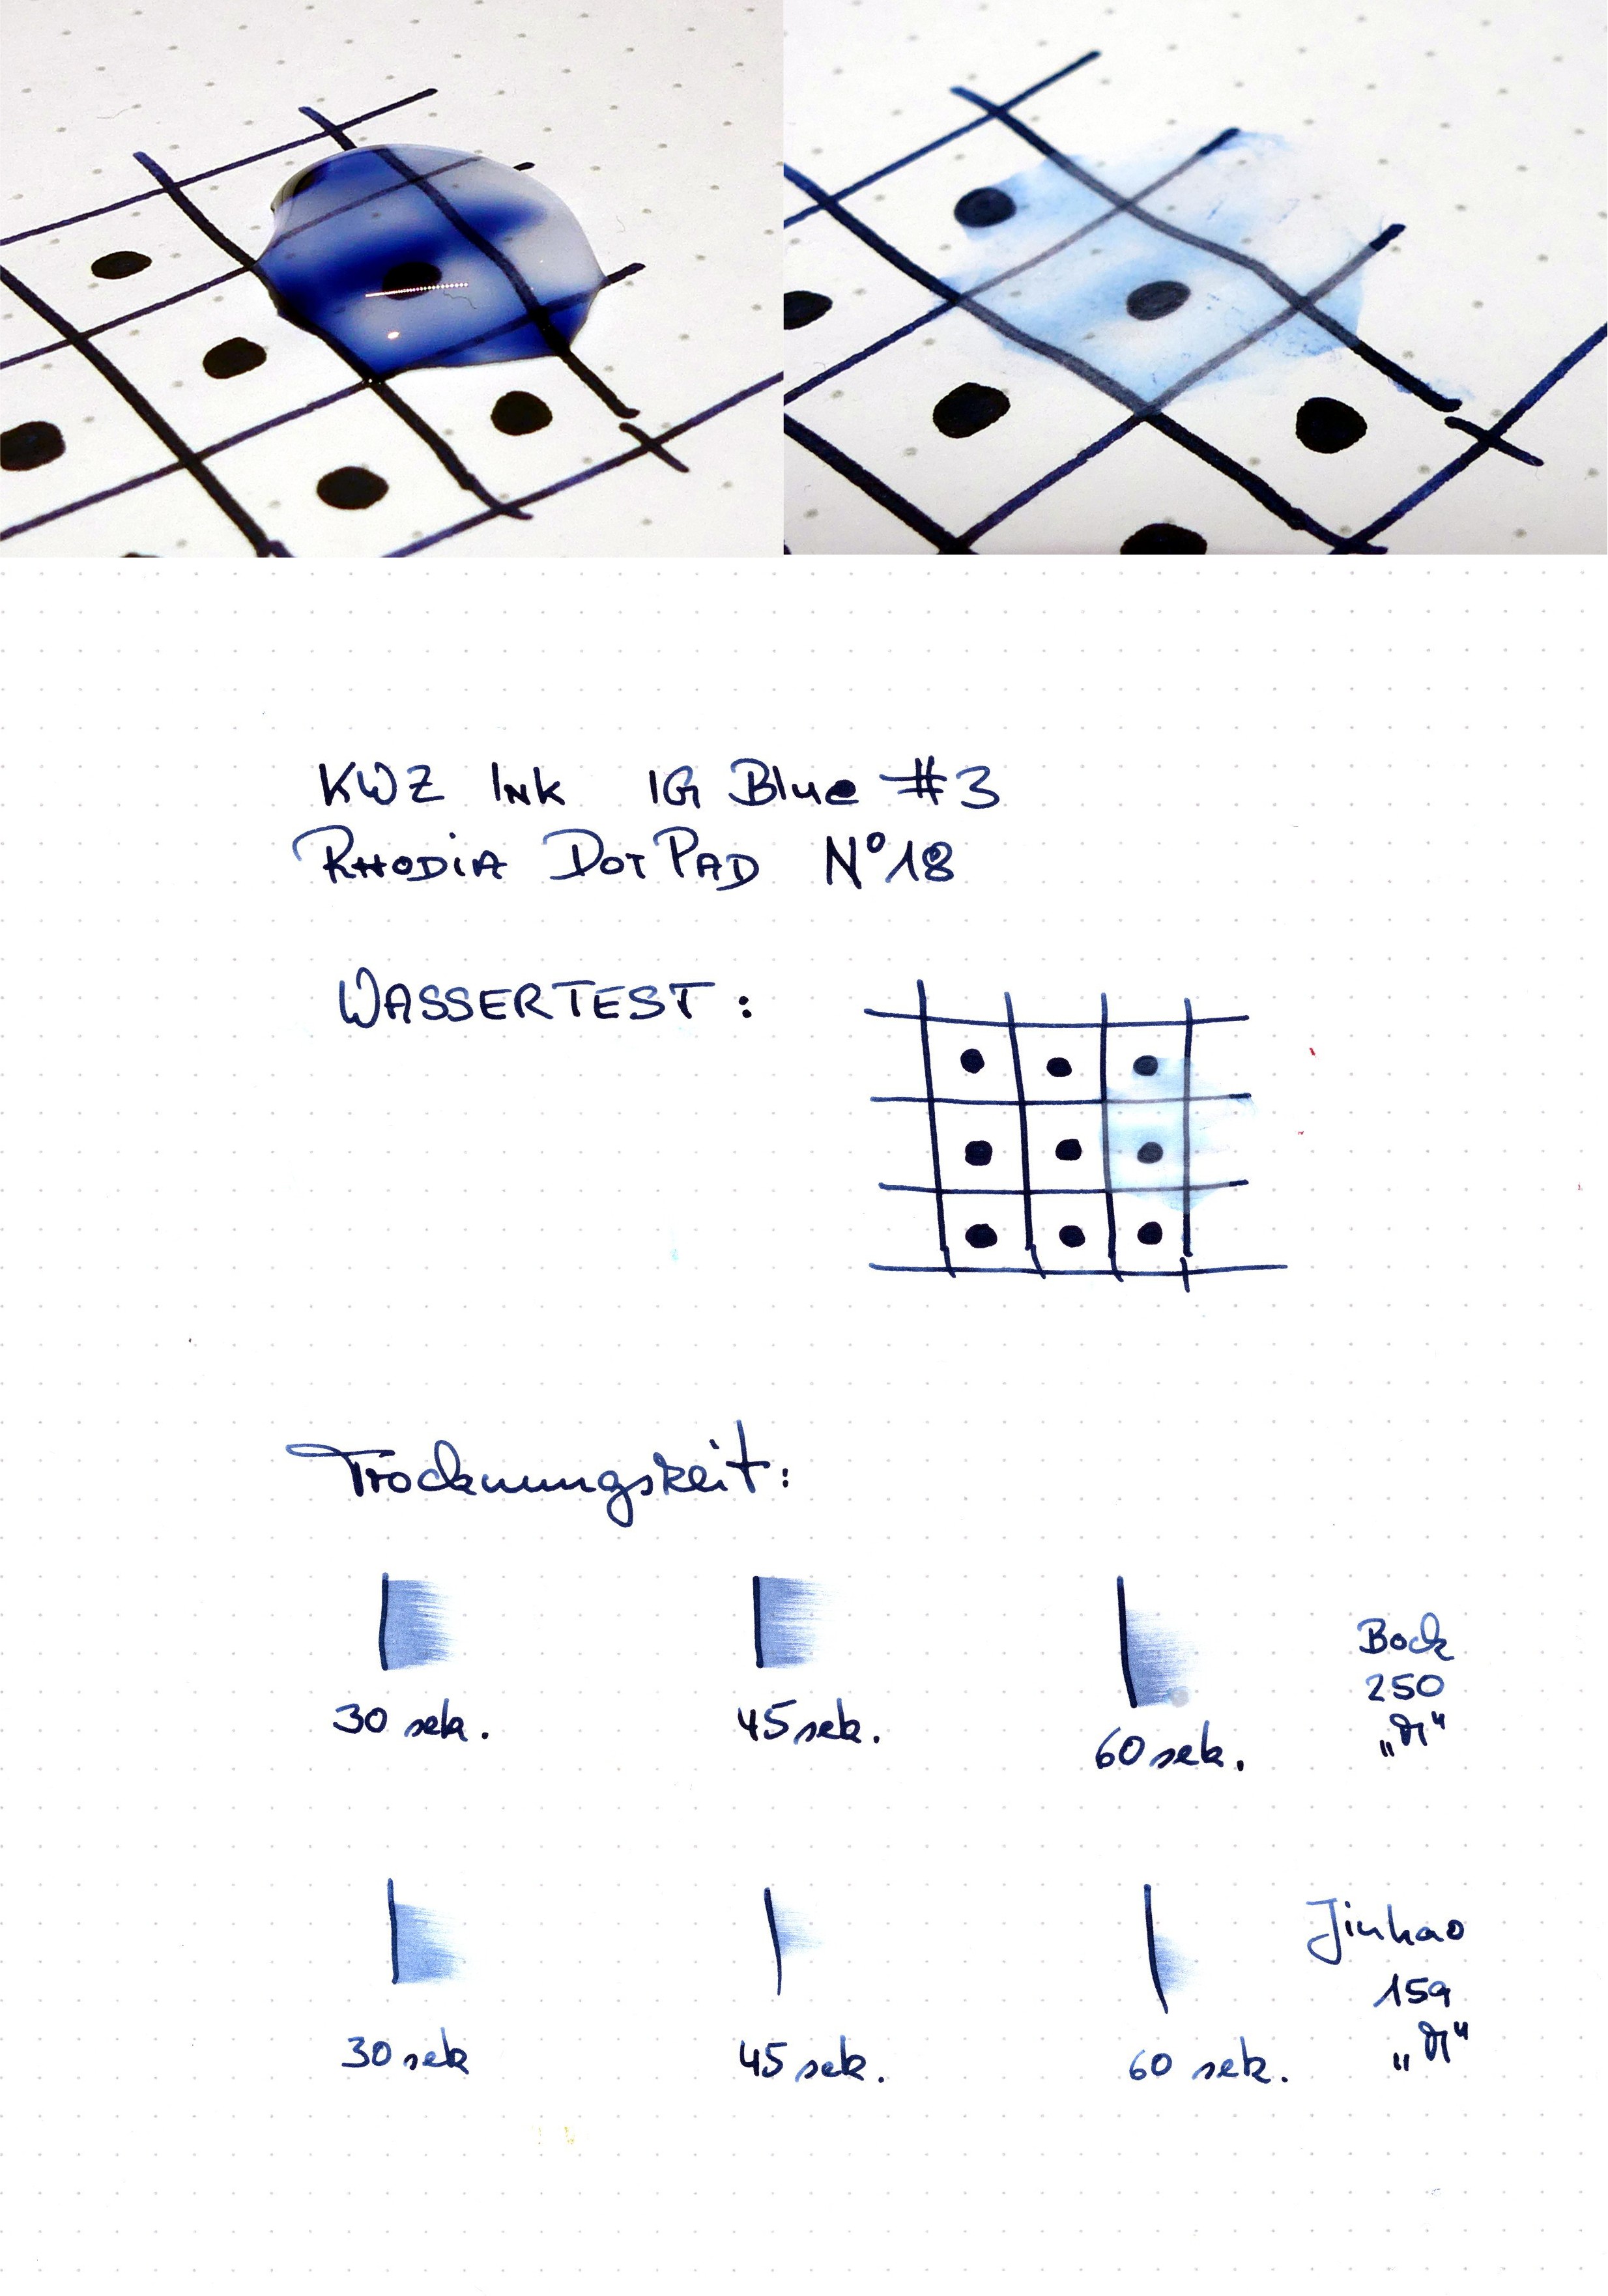 KWZ Ink IG Blue #3
RHODIA DOT PAD N°18
WASSERTEST:
Trocknungszeit:
30 sek.
45 sek.
60 sek.
Bock
250
„M“
30 sek
45 sek.
60 sek.
Jinhao
159
„M“